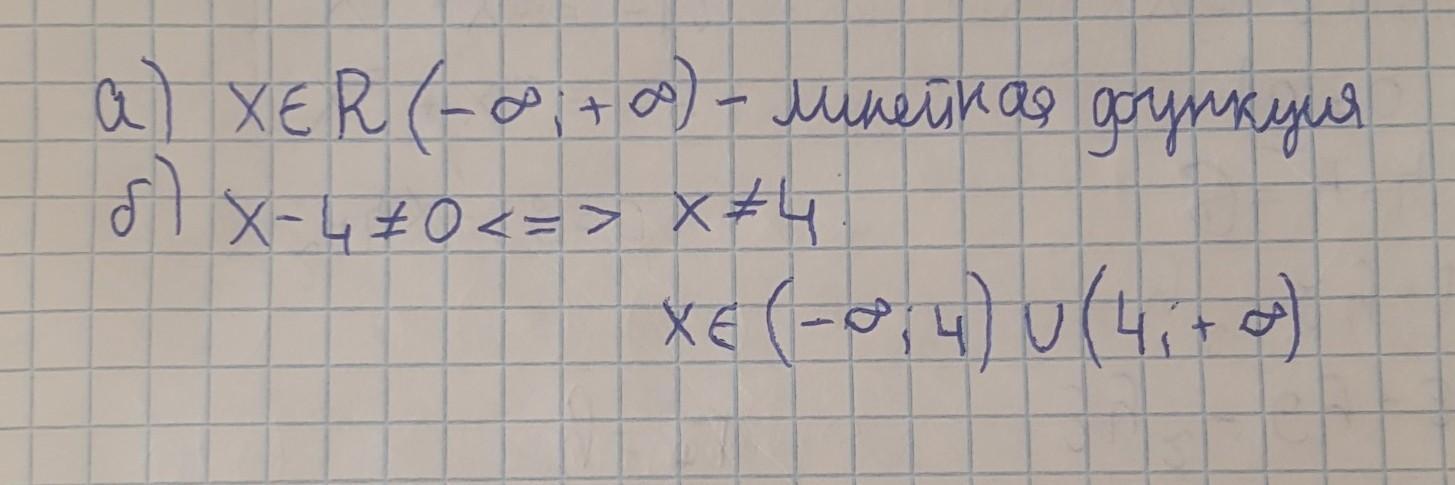 а) x∈R (-∞;+∞) - линейная функция
б) x-4≠0<=> x≠4.
x∈(-∞;4)∪(4;+∞)